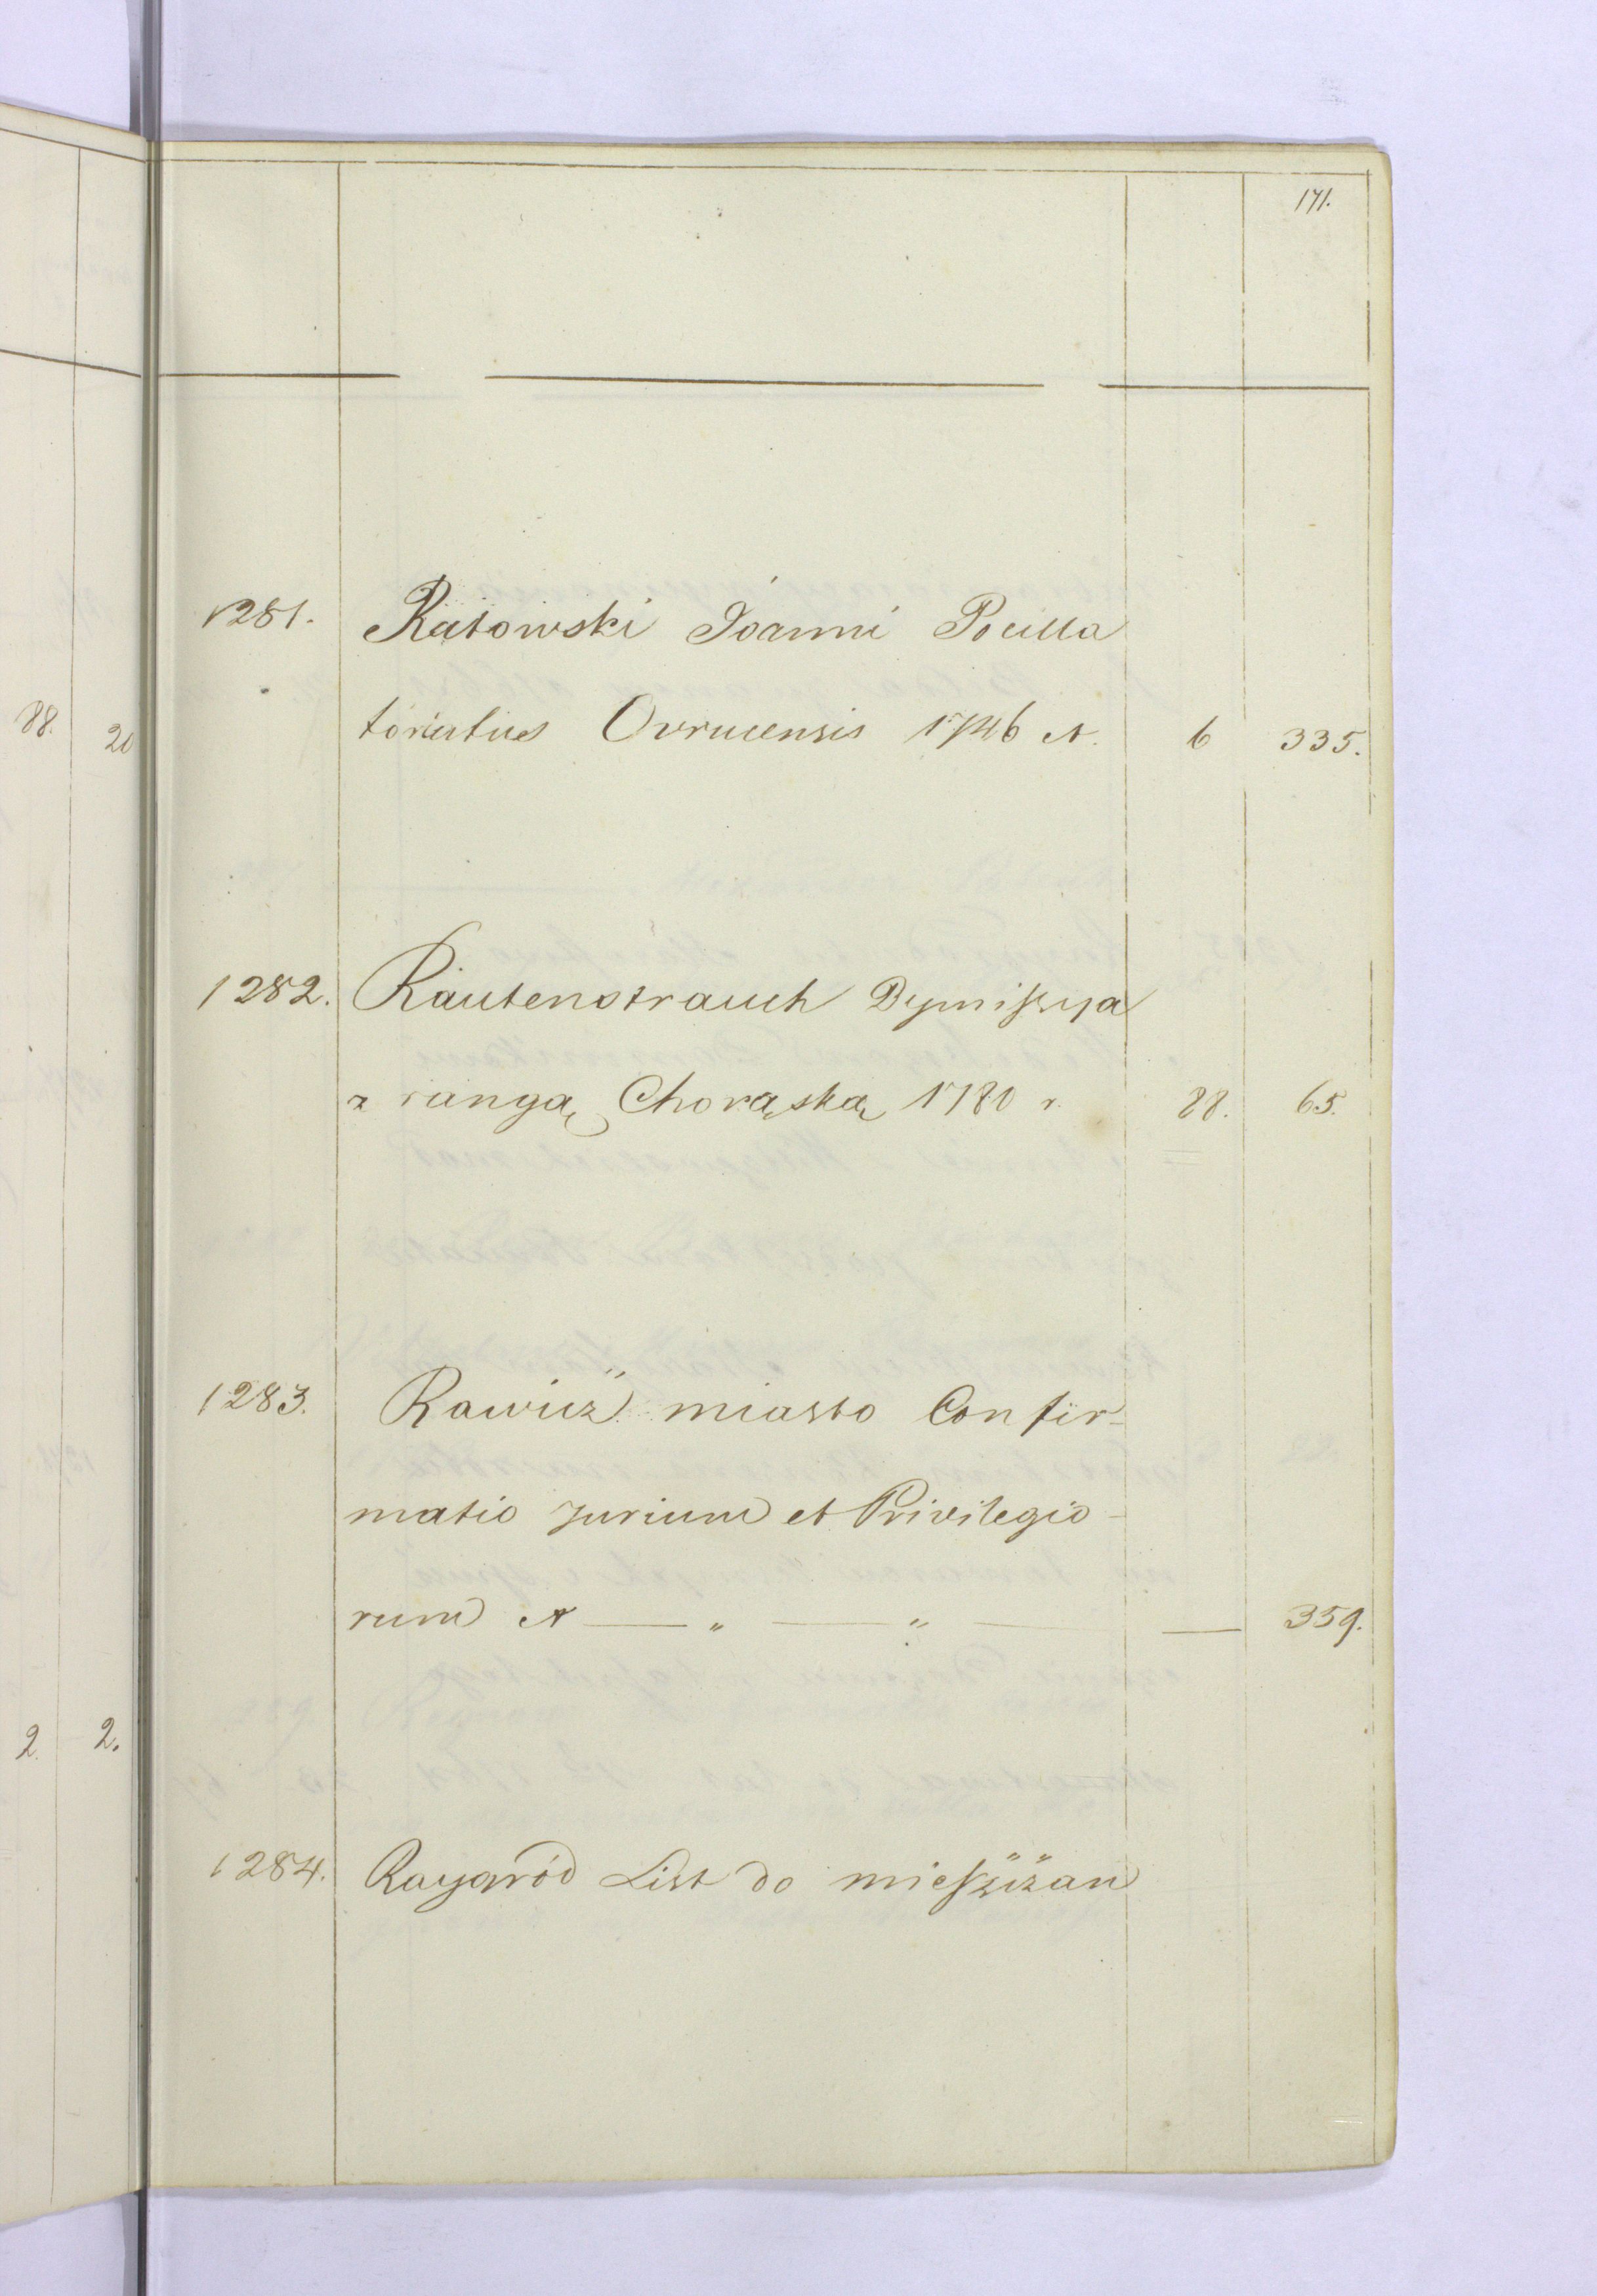 171.
1281. Ratowski Joanni Pocilla
toriatus Ovrucensis 1746 A. 6 335.
88. 20
1282. Rautenstrauch Dymissya
z rangą Chorąską 1780 r. 88. 65.
1283. Rawicz miasto Confir-
matio Jurium et Privilegio-
rum A — " — " — — 359.
2. 2.
1284. Raygród List do mieszczan